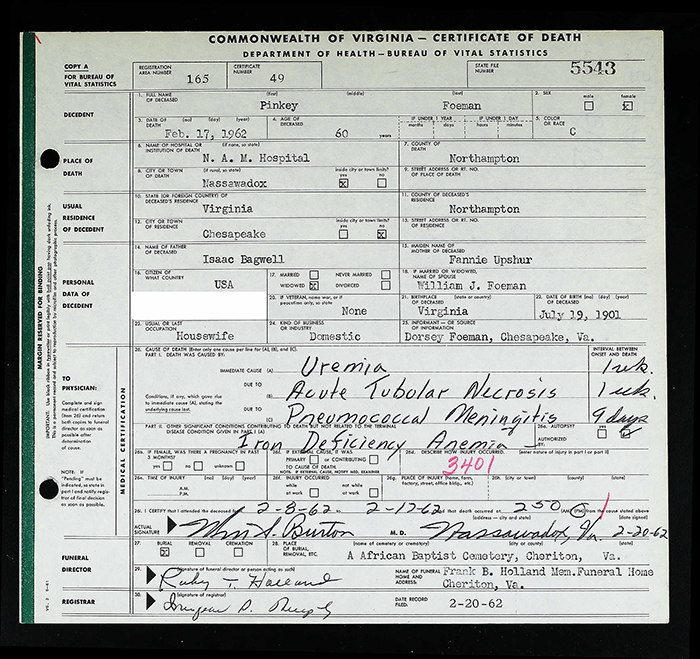 COMMONWEALTH OF VIRGINIA — CERTIFICATE OF DEATH
DEPARTMENT OF HEALTH—BUREAU OF VITAL STATISTICS
COPY A
FOR BUREAU OF VITAL STATISTICS
REGISTRATION AREA NUMBER 165 CERTIFICATE NUMBER 49 STATE FILE NUMBER 5543
DECEDENT
1. FULL NAME OF DECEASED (first) (middle) (last) Pinkey Foeman 2. SEX male female ☒
3. DATE OF DEATH (mo) (day) (year) Feb. 17, 1962 4. AGE OF DECEASED 60 years IF UNDER 1 YEAR months days IF UNDER 1 DAY hours minutes 5. COLOR OR RACE C
PLACE OF DEATH
6. NAME OF HOSPITAL OR INSTITUTION OF DEATH (if none, so state) N. A. M. Hospital 7. COUNTY OF DEATH Northampton
8. CITY OR TOWN OF DEATH (if rural, so state) Nassawadox inside city or town limits? yes ☒ no 9. STREET ADDRESS OR RT. NO. OF PLACE OF DEATH
USUAL RESIDENCE OF DECEDENT
10. STATE (OR FOREIGN COUNTRY) OF DECEASED'S RESIDENCE Virginia 11. COUNTY OF DECEASED'S RESIDENCE Northampton
12. CITY OR TOWN OF RESIDENCE Chesapeake inside city or town limits? yes no ☒ 13. STREET ADDRESS OR RT. NO. OF RESIDENCE
PERSONAL DATA OF DECEDENT
14. NAME OF FATHER OF DECEASED Isaac Bagwell 15. MAIDEN NAME OF MOTHER OF DECEASED Fannie Upshur
16. CITIZEN OF WHAT COUNTRY USA 17. MARRIED NEVER MARRIED WIDOWED ☒ DIVORCED 18. IF MARRIED OR WIDOWED, NAME OF SPOUSE William J. Foeman
20. IF VETERAN, name war, or if peacetime only, so state None 21. BIRTHPLACE OF DECEASED (state or country) Virginia 22. DATE OF BIRTH (mo) (day) (year) July 19, 1901
23. USUAL OR LAST OCCUPATION Housewife 24. KIND OF BUSINESS OR INDUSTRY Domestic 25. INFORMANT - OR SOURCE OF INFORMATION Dorsey Foeman, Chesapeake, Va.
MARGIN RESERVED FOR BINDING
TO PHYSICIAN:
Complete and sign medical certification (item 26) and return both copies to funeral director as soon as possible after determination of cause.
NOTE. If "Pending" must be indicated, so state in part I and notify registrar of final decision as soon as possible.
MEDICAL CERTIFICATION
26. CAUSE OF DEATH (Enter only one cause per line for (A), (B), and (C).
PART I. DEATH WAS CAUSED BY: INTERVAL BETWEEN ONSET AND DEATH
IMMEDIATE CAUSE (A) Uremia 1 wk.
Conditions, if any, which gave rise to immediate cause (A), stating the underlying cause last.
DUE TO (B) Acute Tubular Necrosis 1 wk.
DUE TO (C) Pneumococcal Meningitis 9 days
PART II. OTHER SIGNIFICANT CONDITIONS CONTRIBUTING TO DEATH BUT NOT RELATED TO THE TERMINAL DISEASE CONDITION GIVEN IN PART I (A) Iron Deficiency Anemia 26a. AUTOPSY? yes no AUTHORIZED BY:
26b. IF FEMALE, WAS THERE A PREGNANCY IN PAST 3 MONTHS? yes no unknown 26c. IF EXTERNAL CAUSE, IT WAS PRIMARY or CONTRIBUTING TO CAUSE OF DEATH. NOTE. IF EXTERNAL CAUSE, NOTIFY MED. EXAMINER 26d. DESCRIBE HOW INJURY OCCURRED. (enter nature of injury in part I or part II)
3401
26e. TIME OF INJURY (mo.) (day) (year) A.M. P.M. 26f. INJURY OCCURRED while at work not while at work 26g. PLACE OF INJURY (home, farm, factory, street, office bldg., etc.) 26h. (city or town) (county) (state)
26. I CERTIFY that I attended the deceased 2-8-62 2-17-62 that death occurred at 2 50 (AM) (PM) from the cause stated above
ACTUAL SIGNATURE Wm S. Burton M. D. (address — city and state) Nassawadox, Va. (date signed) 2-20-62
FUNERAL DIRECTOR
27. BURIAL ☒ REMOVAL CREMATION 28. PLACE OF BURIAL, REMOVAL, ETC. (name of cemetery or crematory) (city or county) (state) A African Baptist Cemetery, Cheriton, Va.
29. (signature of funeral director or person acting as such) Ruby T. Holland NAME OF FUNERAL HOME AND ADDRESS Frank B. Holland Mem.Funeral Home
Cheriton, Va.
REGISTRAR
30. (signature of registrar) DATE RECORD FILED: 2-20-62